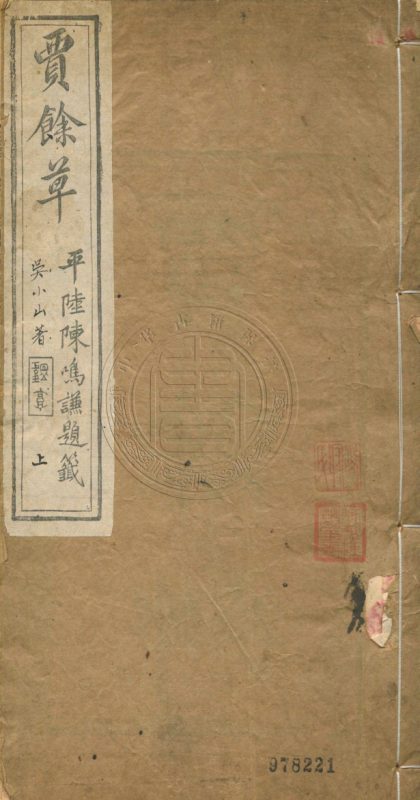 賈餘草
平陸陳鳴謙題籤
吳小山著
上
978221